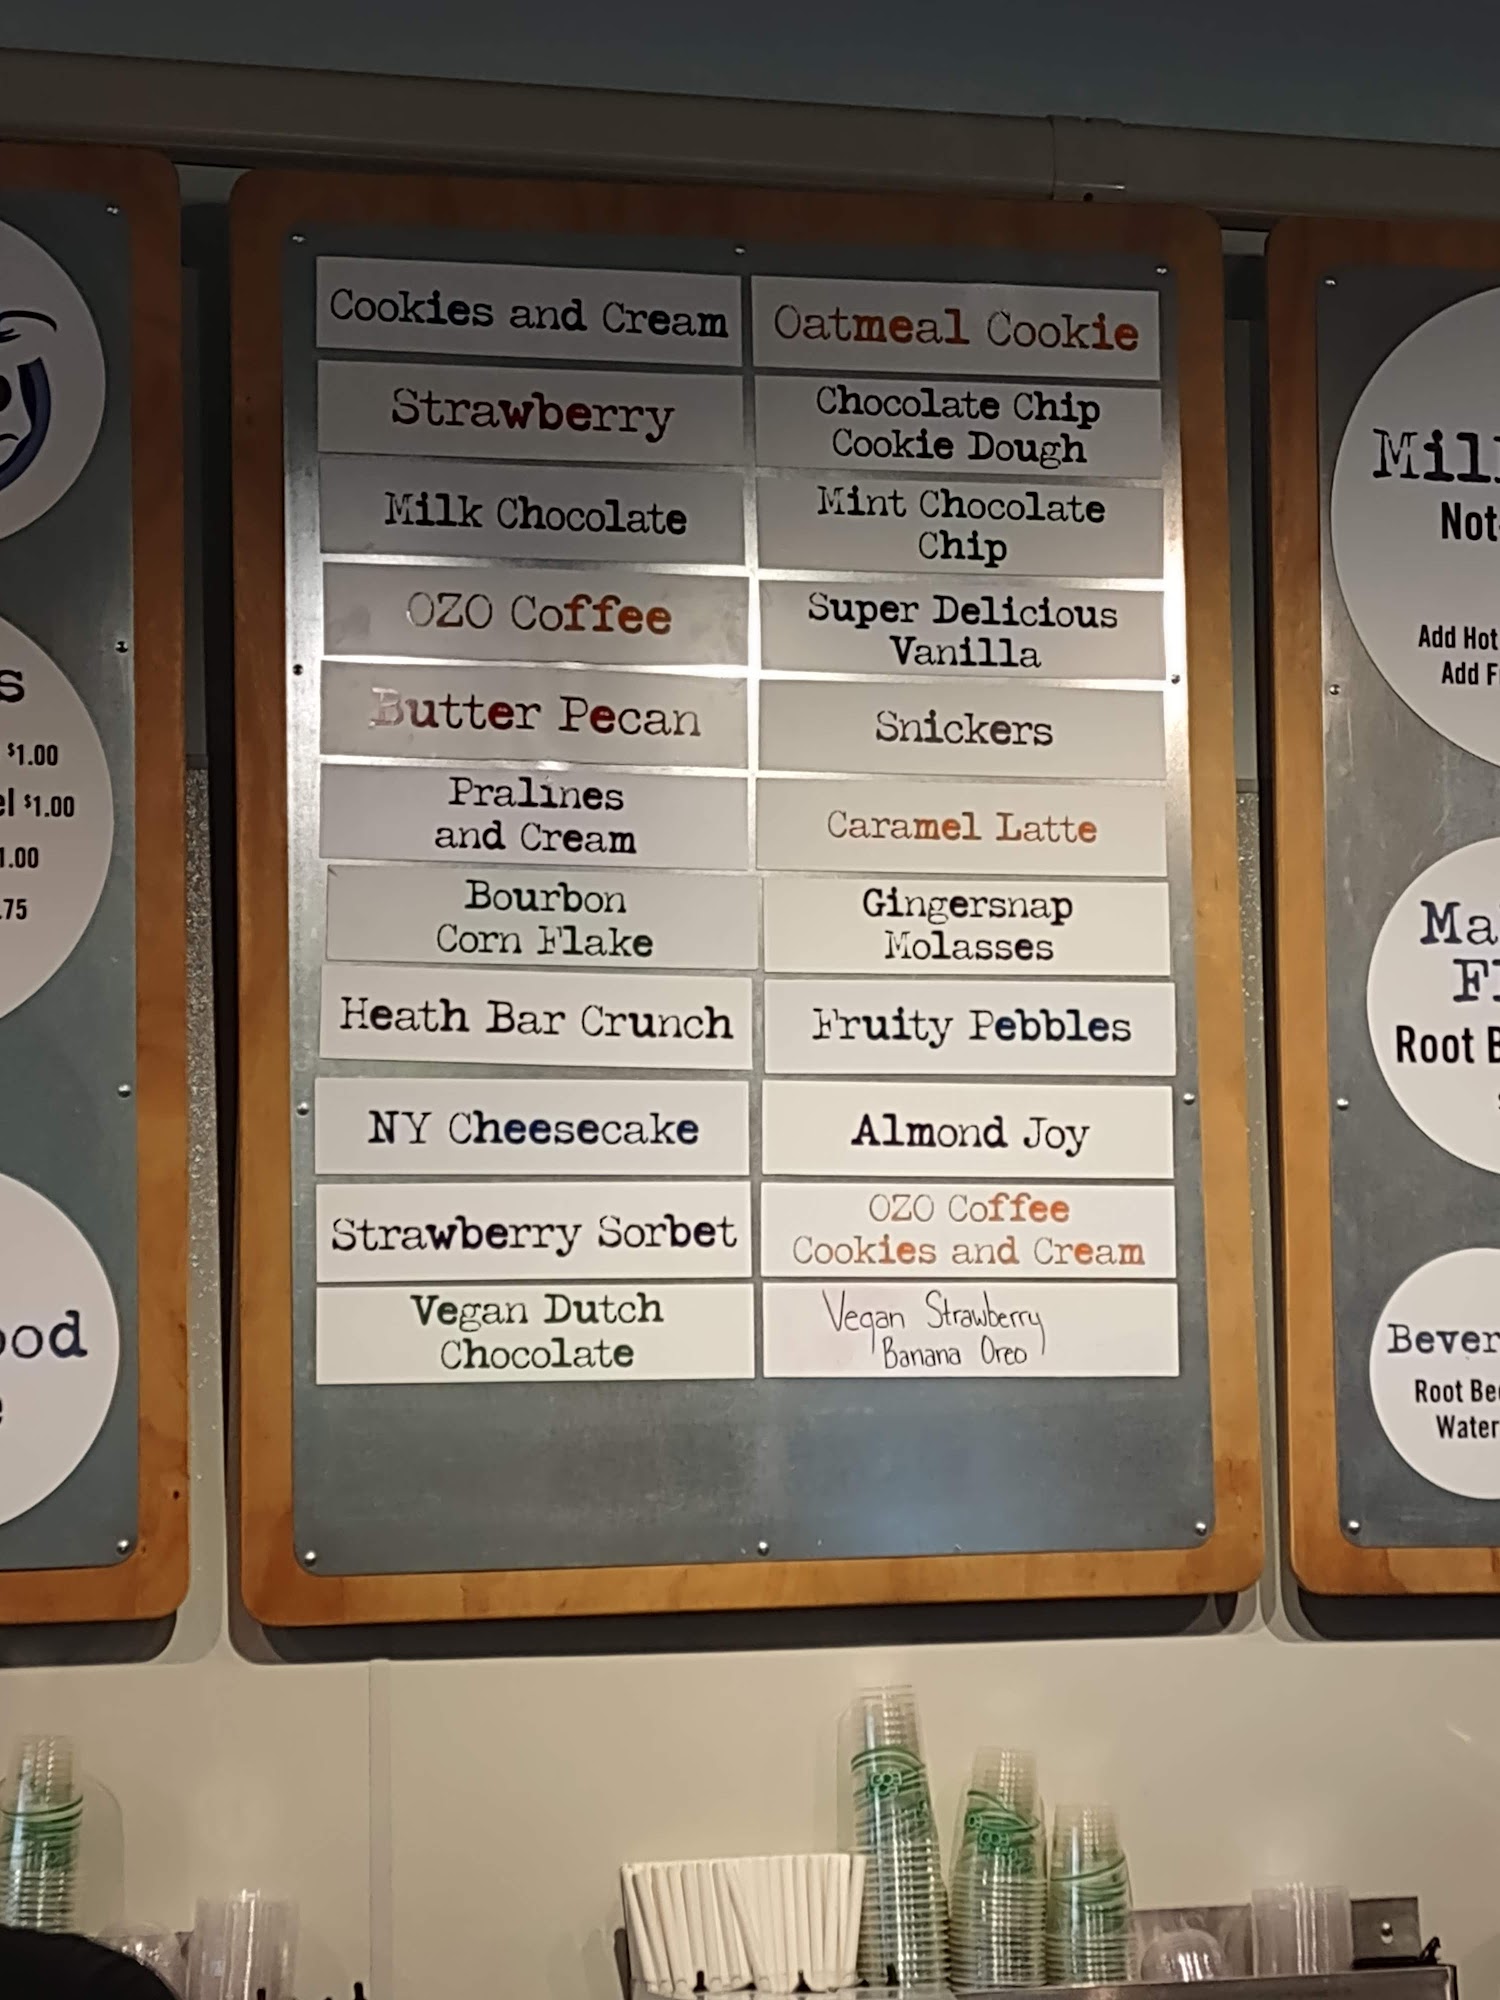 Cookies and Cream
Oatmeal Cookie
Strawberry
Chocolate Chip
Cookie Dough
Milk Chocolate
Mint Chocolate
Chip
OZO Coffee
Super Delicious
Vanilla
Butter Pecan
Snickers
Pralines
and Cream
Caramel Latte
Bourbon
Corn Flake
Gingersnap
Molasses
Heath Bar Crunch
Fruity Pebbles
NY Cheesecake
Almond Joy
Strawberry Sorbet
OZO Coffee
Cookies and Cream
Vegan Dutch
Chocolate
Vegan Strawberry
Banana Oreo
$1.00
$1.00
1.00
.75
Not
Add Hot
Add
Root
Root
Water